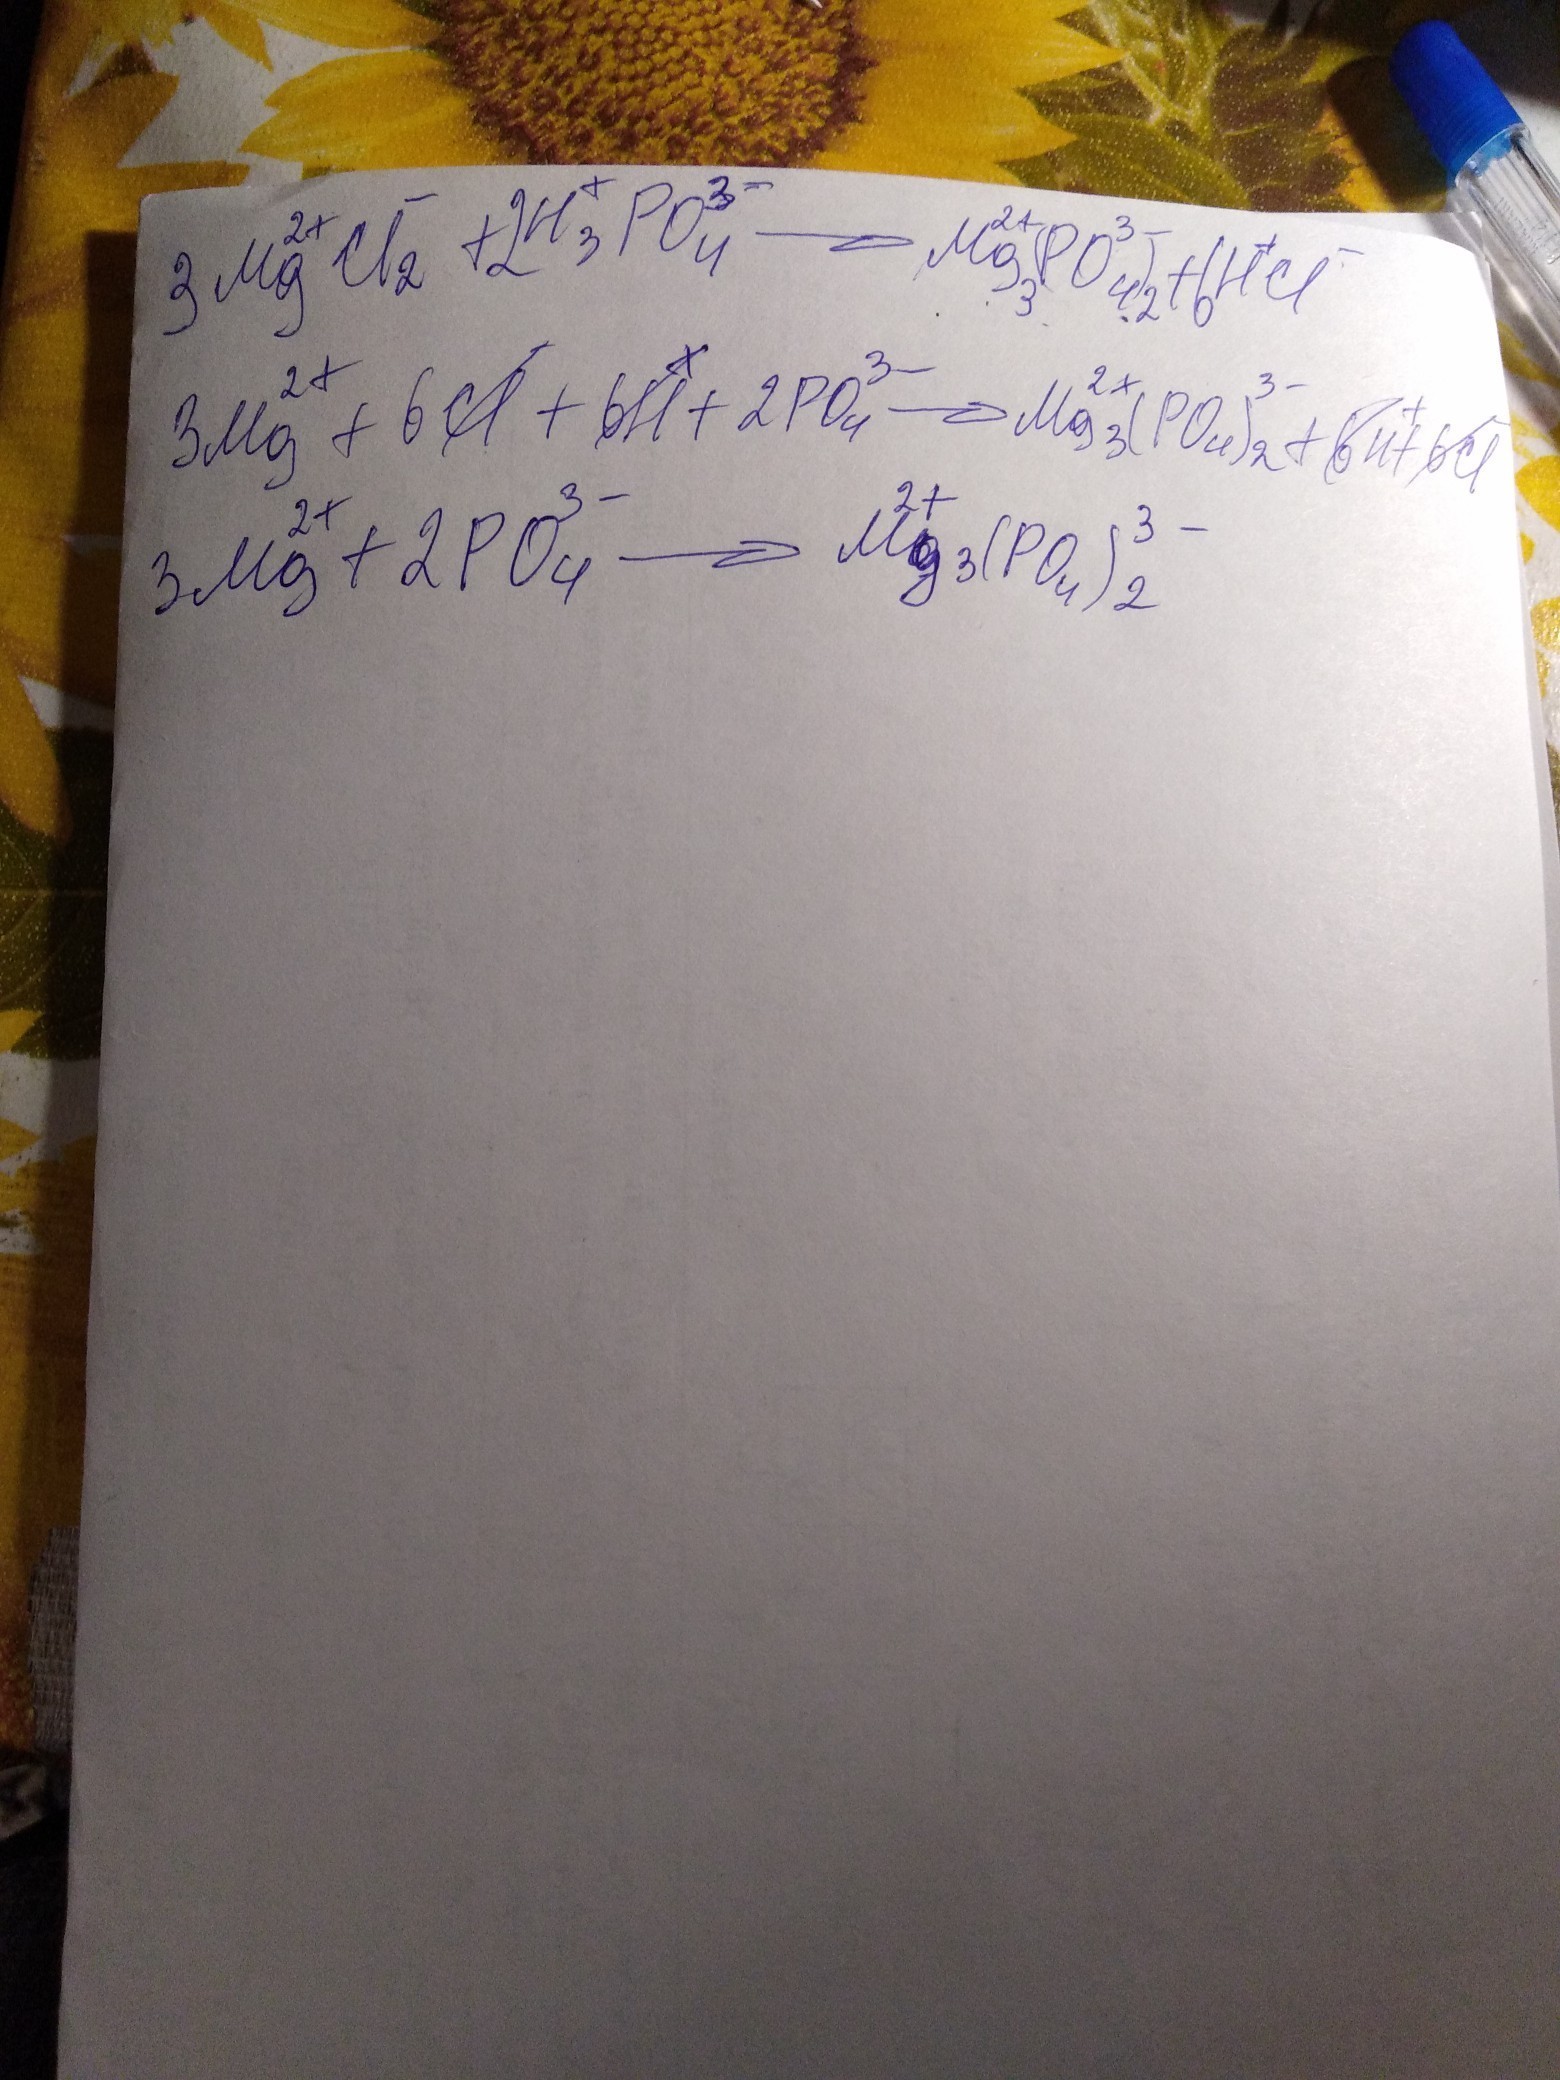 3Mg²⁺Cl⁻₂ + 2H⁺₃PO₄³⁻ → Mg²⁺₃(PO₄³⁻)₂ + 6H⁺Cl⁻
3Mg²⁺ + 6Cl⁻ + 6H⁺ + 2PO₄³⁻ → Mg²⁺₃(PO₄)₂³⁻ + 6H⁺ + 6Cl⁻
3Mg²⁺ + 2PO₄³⁻ → Mg²⁺₃(PO₄)₂³⁻